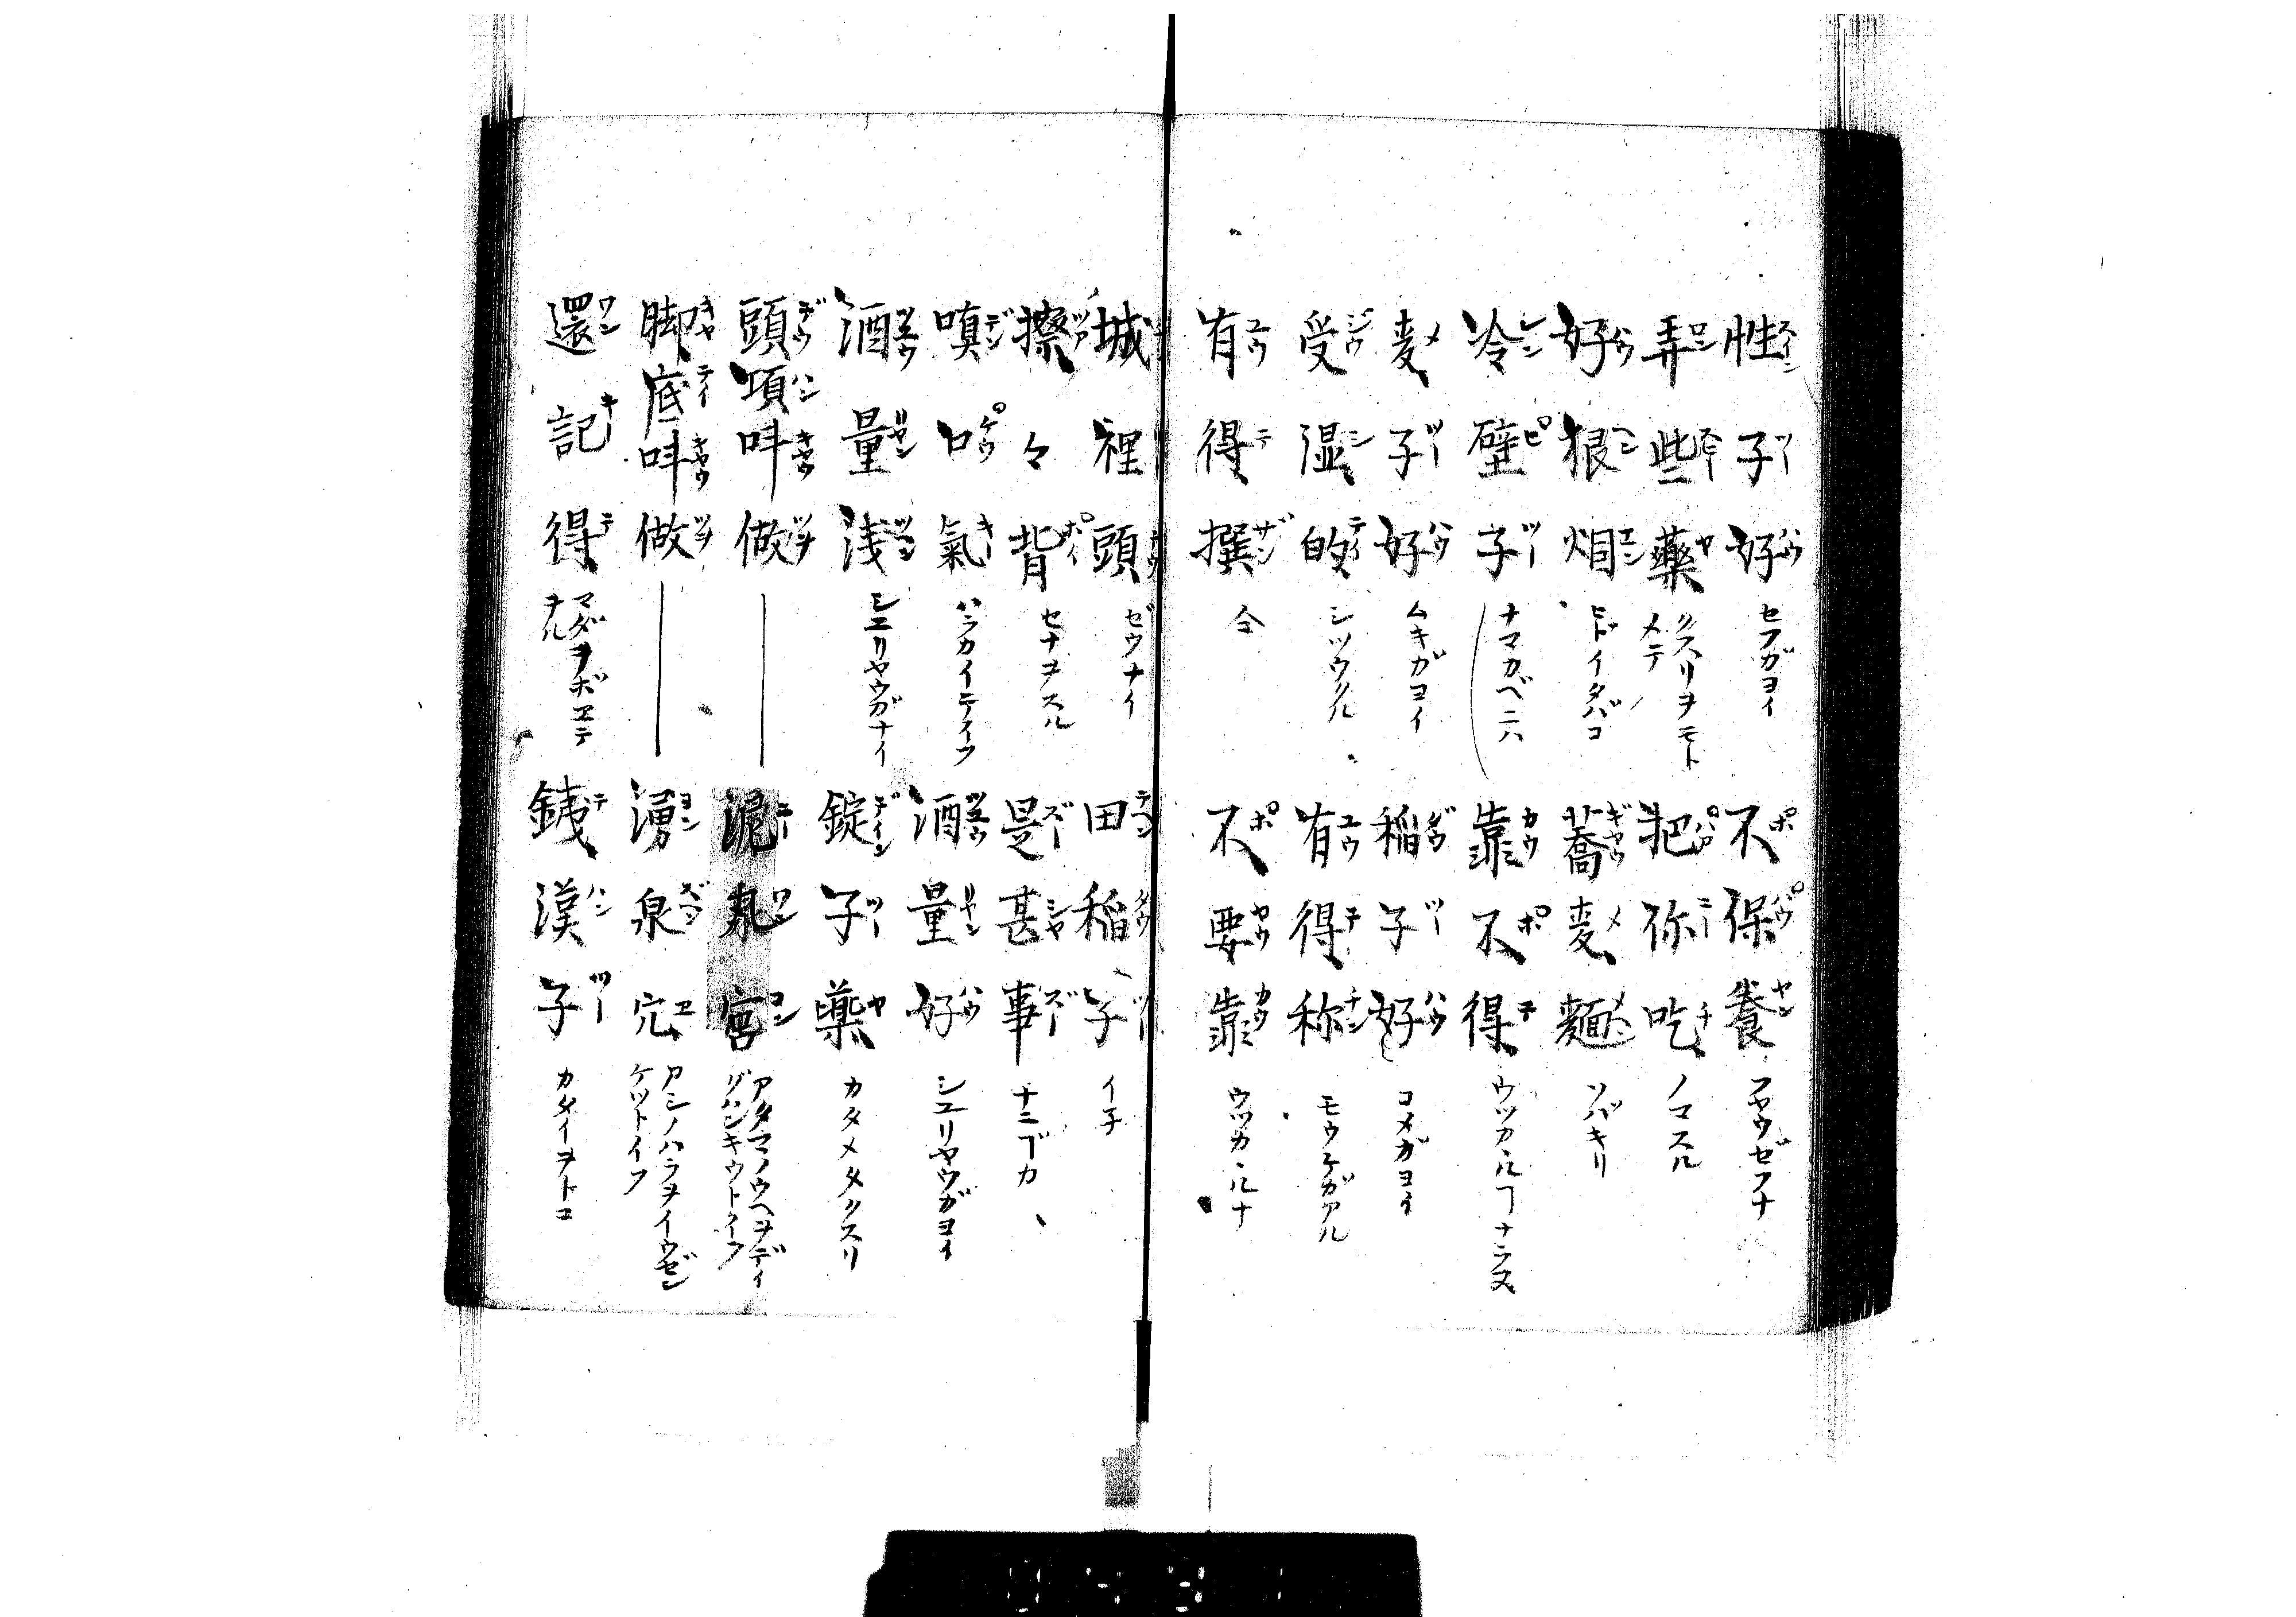 性子好 セフガヨイ
不保養 フヤウゼフナ
弄些藥 クスリヲモトメテ
把你吃 ノマスル
好狠烟 ヒドイタバコ
蕎麦麺 ソバキリ
冷壁子 ナマカベニハ
靠不得 ウツカヽルヿナラヌ
麦子好 ムキガヨイ
稲子好 コメガヨイ
受湿的 シツウクル
有得称 モウケガアル
有得撰 仝
不要靠 ウツカヽルナ
城裡頭 ゼウナイ
田稲子 イ子
擦々背 セナヲスル
是甚事 ナニヿカ
嗔口氣
酒量好 シユリヤウガヨイ
酒量浅 シユリヤウガナイ
錠子藥 カタメタクスリ
頭項呌做
泥丸宮 アタマノウヘヲデイグハンキウトイフ
脚底呌做
湧泉穴 アシノハラヲイウゼンケツトイフ
還記得 マダヲボヱテヲル
銕漢子 カタイヲトコ